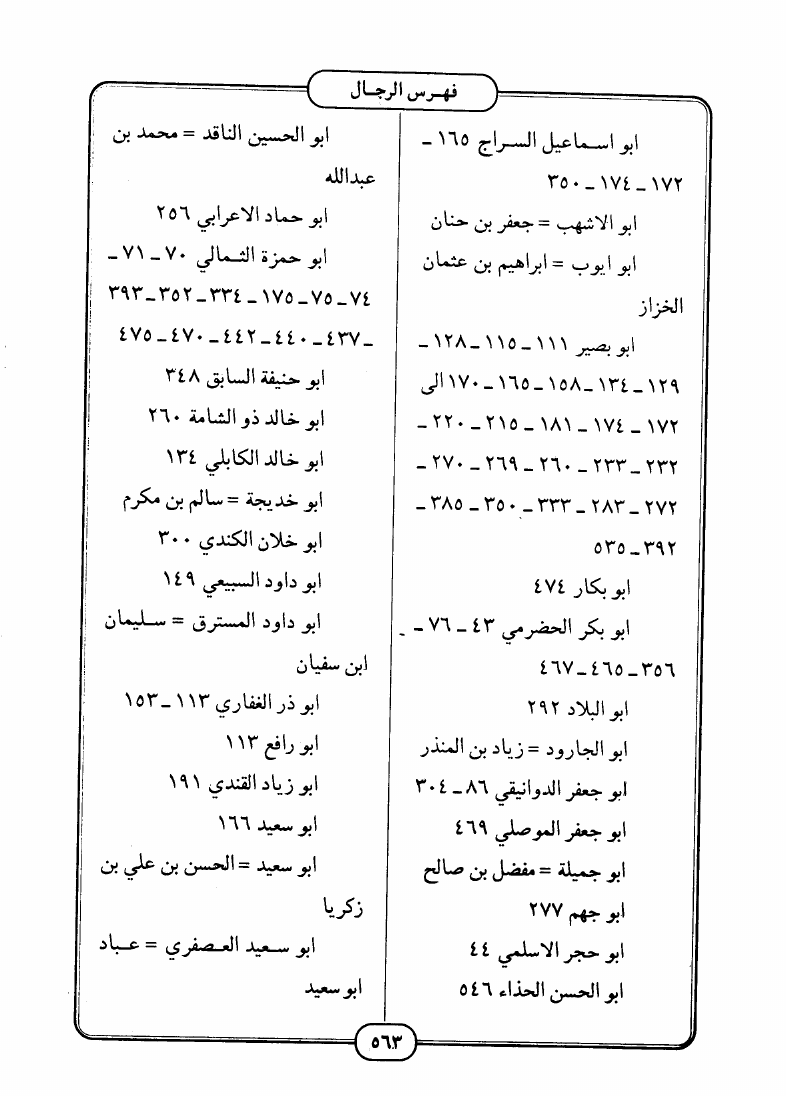 فهرس الرجال
ابو اسماعيل السراج ١٦٥ ـ
١٧٢ ـ ١٧٤ ـ ٣٥٠
ابو الاشهب = جعفر بن حنان
ابو ايوب = ابراهيم بن عثمان
الخزاز
ابو بصير ١١١ ـ ١١٥ ـ ١٢٨ ـ
١٢٩ ـ ١٣٤ ـ ١٥٨ ـ ١٦٥ ـ ١٧٠ الى
١٧٢ ـ ١٧٤ ـ ١٨١ ـ ٢١٥ ـ ٢٢٠ ـ
٢٣٢ ـ ٢٣٣ ـ ٢٦٠ ـ ٢٦٩ ـ ٢٧٠ ـ
٢٧٢ ـ ٢٨٣ ـ ٣٣٣ ـ ٣٥٠ ـ ٣٨٥ ـ
٣٩٢ ـ ٥٣٥
ابو بكار ٤٧٤
ابو بكر الحضرمي ٤٣ ـ ٧٦ ـ
٣٥٦ ـ ٤٦٥ ـ ٤٦٧
ابو البلاد ٢٩٢
ابو الجارود = زياد بن المنذر
ابو جعفر الدوانيقي ٨٦ ـ ٣٠٤
ابو جعفر الموصلي ٤٦٩
ابو جميلة = مفضل بن صالح
ابو جهم ٢٧٧
ابو حجر الاسلمي ٤٤
ابو الحسن الحذاء ٥٤٦
ابو الحسين الناقد = محمد بن
عبدالله
ابو حماد الاعرابي ٢٥٦
ابو حمزة الثمالي ٧٠ ـ ٧١ ـ
٧٤ ـ ٧٥ ـ ١٧٥ ـ ٣٣٤ ـ ٣٥٢ ـ ٣٩٣
ـ ٤٣٧ ـ ٤٤٠ ـ ٤٤٢ ـ ٤٧٠ ـ ٤٧٥
ابو حنيفة السابق ٣٤٨
ابو خالد ذو الشامة ٢٦٠
ابو خالد الكابلي ١٣٤
ابو خديجة = سالم بن مكرم
ابو خلان الكندي ٣٠٠
ابو داود السبيعي ١٤٩
ابو داود المسترق = سليمان
ابن سفيان
ابو ذر الغفاري ١١٣ ـ ١٥٣
ابو رافع ١١٣
ابو زياد القندي ١٩١
ابو سعيد ١٦٦
ابو سعيد = الحسن بن علي بن
زكريا
ابو سعيد العصفري = عباد
ابو سعيد
٥٦٣